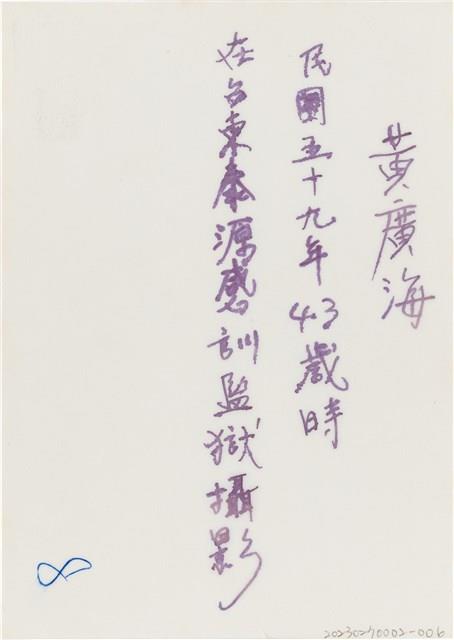 黃廣海
民國五十九年43歲時
在台東泰源感訓監獄攝影
8
20230270002-006